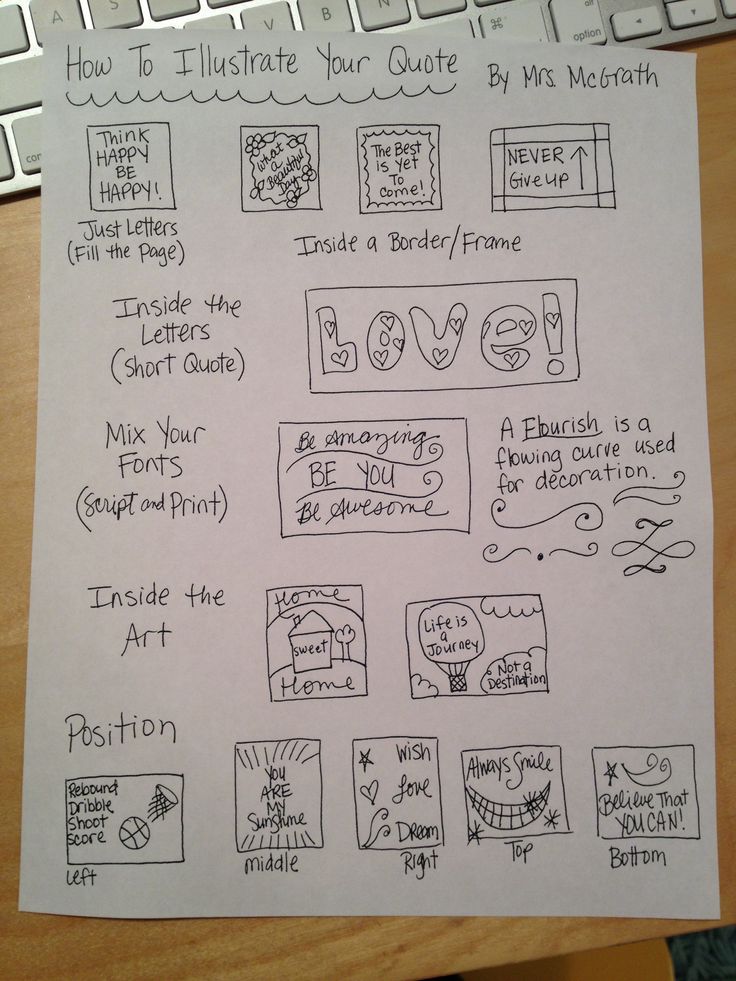 A
S
B
N
⌘
alt
option
con
How To Illustrate Your Quote
By Mrs. McGrath
Think
HAPPY
BE
HAPPY!
Just Letters
(Fill the Page)
What
a
Beautiful
Day
The Best
is yet
To
come!
NEVER
Give up
Inside a Border/Frame
Inside the
Letters
(Short Quote)
Love!
Mix Your
Fonts
(Script and Print)
Be Amazing
BE YOU
Be Awesome
A Flourish is a
flowing curve used
for decoration.
Inside the
Art
Home
sweet
Home
Life is
a
Journey
Not a
Destination
Position
Rebound
Dribble
Shoot
Score
Left
You
ARE
MY
Sunshine
middle
Wish
Love
Dream
Right
Always Smile
Top
Believe That
YOU CAN!
Bottom